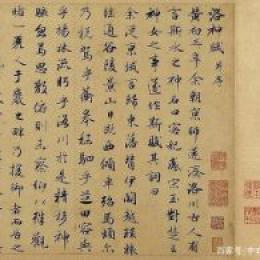 洛神賦 并序
黃初三年余朝京師還濟洛川古人有
言斯水之神名曰宓妃感宋玉對楚王
神女之事遂作斯賦其詞曰
余從京城言歸東藩背伊闕越轘轅
經通谷陵景山日既西傾車殆馬煩爾
乃稅駕乎蘅皋秣駟乎芝田容與
乎楊林流眄乎洛川於是精移神
駭忽焉思散俯則未察仰以殊觀
睹一麗人于巖之畔乃援御者而告之
百家号/中